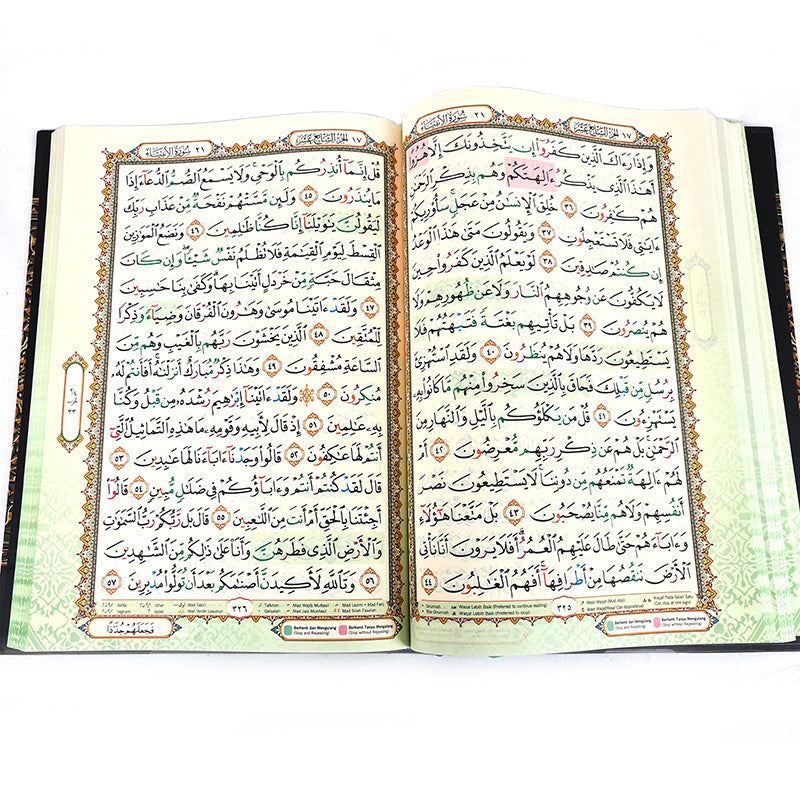 ١٧ الجزء السابع عشر
سورة الأنبياء ٢١
وَإِذَا رَءَاكَ ٱلَّذِينَ كَفَرُوٓا۟ إِن يَتَّخِذُونَكَ إِلَّا هُزُوًا
أَهَٰذَا ٱلَّذِى يَذْكُرُ ءَالِهَتَكُمْ وَهُم بِذِكْرِ ٱلرَّحْمَٰنِ
هُمْ كَٰفِرُونَ ٣٦ خُلِقَ ٱلْإِنسَٰنُ مِنْ عَجَلٍ سَأُو۟رِيكُمْ
ءَايَٰتِى فَلَا تَسْتَعْجِلُونِ ٣٧ وَيَقُولُونَ مَتَىٰ هَٰذَا ٱلْوَعْدُ
إِن كُنتُمْ صَٰدِقِينَ ٣٨ لَوْ يَعْلَمُ ٱلَّذِينَ كَفَرُوا۟ حِينَ
لَا يَكُفُّونَ عَن وُجُوهِهِمُ ٱلنَّارَ وَلَا عَن ظُهُورِهِمْ وَلَا
هُمْ يُنصَرُونَ ٣٩ بَلْ تَأْتِيهِم بَغْتَةً فَتَبْهَتُهُمْ فَلَا
يَسْتَطِيعُونَ رَدَّهَا وَلَا هُمْ يُنظَرُونَ ٤٠ وَلَقَدِ ٱسْتُهْزِئَ
بِرُسُلٍ مِّن قَبْلِكَ فَحَاقَ بِٱلَّذِينَ سَخِرُوا۟ مِنْهُم مَّا كَانُوا۟ بِهِۦ
يَسْتَهْزِءُونَ ٤١ قُلْ مَن يَكْلَؤُكُم بِٱلَّيْلِ وَٱلنَّهَارِ مِنَ
ٱلرَّحْمَٰنِ بَلْ هُمْ عَن ذِكْرِ رَبِّهِم مُّعْرِضُونَ ٤٢ أَمْ
لَهُمْ ءَالِهَةٌ تَمْنَعُهُم مِّن دُونِنَا لَا يَسْتَطِيعُونَ نَصْرَ
أَنفُسِهِمْ وَلَا هُم مِّنَّا يُصْحَبُونَ ٤٣ بَلْ مَتَّعْنَا هَٰٓؤُلَآءِ
وَءَابَآءَهُمْ حَتَّىٰ طَالَ عَلَيْهِمُ ٱلْعُمُرُ أَفَلَا يَرَوْنَ أَنَّا نَأْتِى
ٱلْأَرْضَ نَنقُصُهَا مِنْ أَطْرَافِهَآ أَفَهُمُ ٱلْغَٰلِبُونَ ٤٤
٣٢٥
Berhenti dan Mengulang (Stop and Repeating)
Berhenti Tanpa Mengulang (Stop without Repeating)
١٧ الجزء السابع عشر
سورة الأنبياء ٢١
قُلْ إِنَّمَآ أُنذِرُكُم بِٱلْوَحْىِ وَلَا يَسْمَعُ ٱلصُّمُّ ٱلدُّعَآءَ إِذَا
مَا يُنذَرُونَ ٤٥ وَلَئِن مَّسَّتْهُمْ نَفْحَةٌ مِّنْ عَذَابِ رَبِّكَ
لَيَقُولُنَّ يَٰوَيْلَنَآ إِنَّا كُنَّا ظَٰلِمِينَ ٤٦ وَنَضَعُ ٱلْمَوَٰزِينَ
ٱلْقِسْطَ لِيَوْمِ ٱلْقِيَٰمَةِ فَلَا تُظْلَمُ نَفْسٌ شَيْـًٔا وَإِن كَانَ
مِثْقَالَ حَبَّةٍ مِّنْ خَرْدَلٍ أَتَيْنَا بِهَا وَكَفَىٰ بِنَا حَٰسِبِينَ
٤٧ وَلَقَدْ ءَاتَيْنَا مُوسَىٰ وَهَٰرُونَ ٱلْفُرْقَانَ وَضِيَآءً وَذِكْرًا
لِّلْمُتَّقِينَ ٤٨ ٱلَّذِينَ يَخْشَوْنَ رَبَّهُم بِٱلْغَيْبِ وَهُم مِّنَ
ٱلسَّاعَةِ مُشْفِقُونَ ٤٩ وَهَٰذَا ذِكْرٌ مُّبَارَكٌ أَنزَلْنَٰهُ أَفَأَنتُمْ لَهُۥ
مُنكِرُونَ ٥٠ وَلَقَدْ ءَاتَيْنَآ إِبْرَٰهِيمَ رُشْدَهُۥ مِن قَبْلُ وَكُنَّا
بِهِۦ عَٰلِمِينَ ٥١ إِذْ قَالَ لِأَبِيهِ وَقَوْمِهِۦ مَا هَٰذِهِ ٱلتَّمَاثِيلُ ٱلَّتِىٓ
أَنتُمْ لَهَا عَٰكِفُونَ ٥٢ قَالُوا۟ وَجَدْنَآ ءَابَآءَنَا لَهَا عَٰبِدِينَ ٥٣
قَالَ لَقَدْ كُنتُمْ أَنتُمْ وَءَابَآؤُكُمْ فِى ضَلَٰلٍ مُّبِينٍ ٥٤ قَالُوٓا۟
أَجِئْتَنَا بِٱلْحَقِّ أَمْ أَنتَ مِنَ ٱللَّٰعِبِينَ ٥٥ قَالَ بَل رَّبُّكُمْ رَبُّ ٱلسَّمَٰوَٰتِ
وَٱلْأَرْضِ ٱلَّذِى فَطَرَهُنَّ وَأَنَا۠ عَلَىٰ ذَٰلِكُم مِّنَ ٱلشَّٰهِدِينَ
٥٦ وَتَٱللَّهِ لَأَكِيدَنَّ أَصْنَٰمَكُم بَعْدَ أَن تُوَلُّوا۟ مُدْبِرِينَ ٥٧
٣٢٦
Berhenti dan Mengulang (Stop and Repeating)
Berhenti Tanpa Mengulang (Stop without Repeating)
فَجَعَلَهُمْ جُذَٰذًا